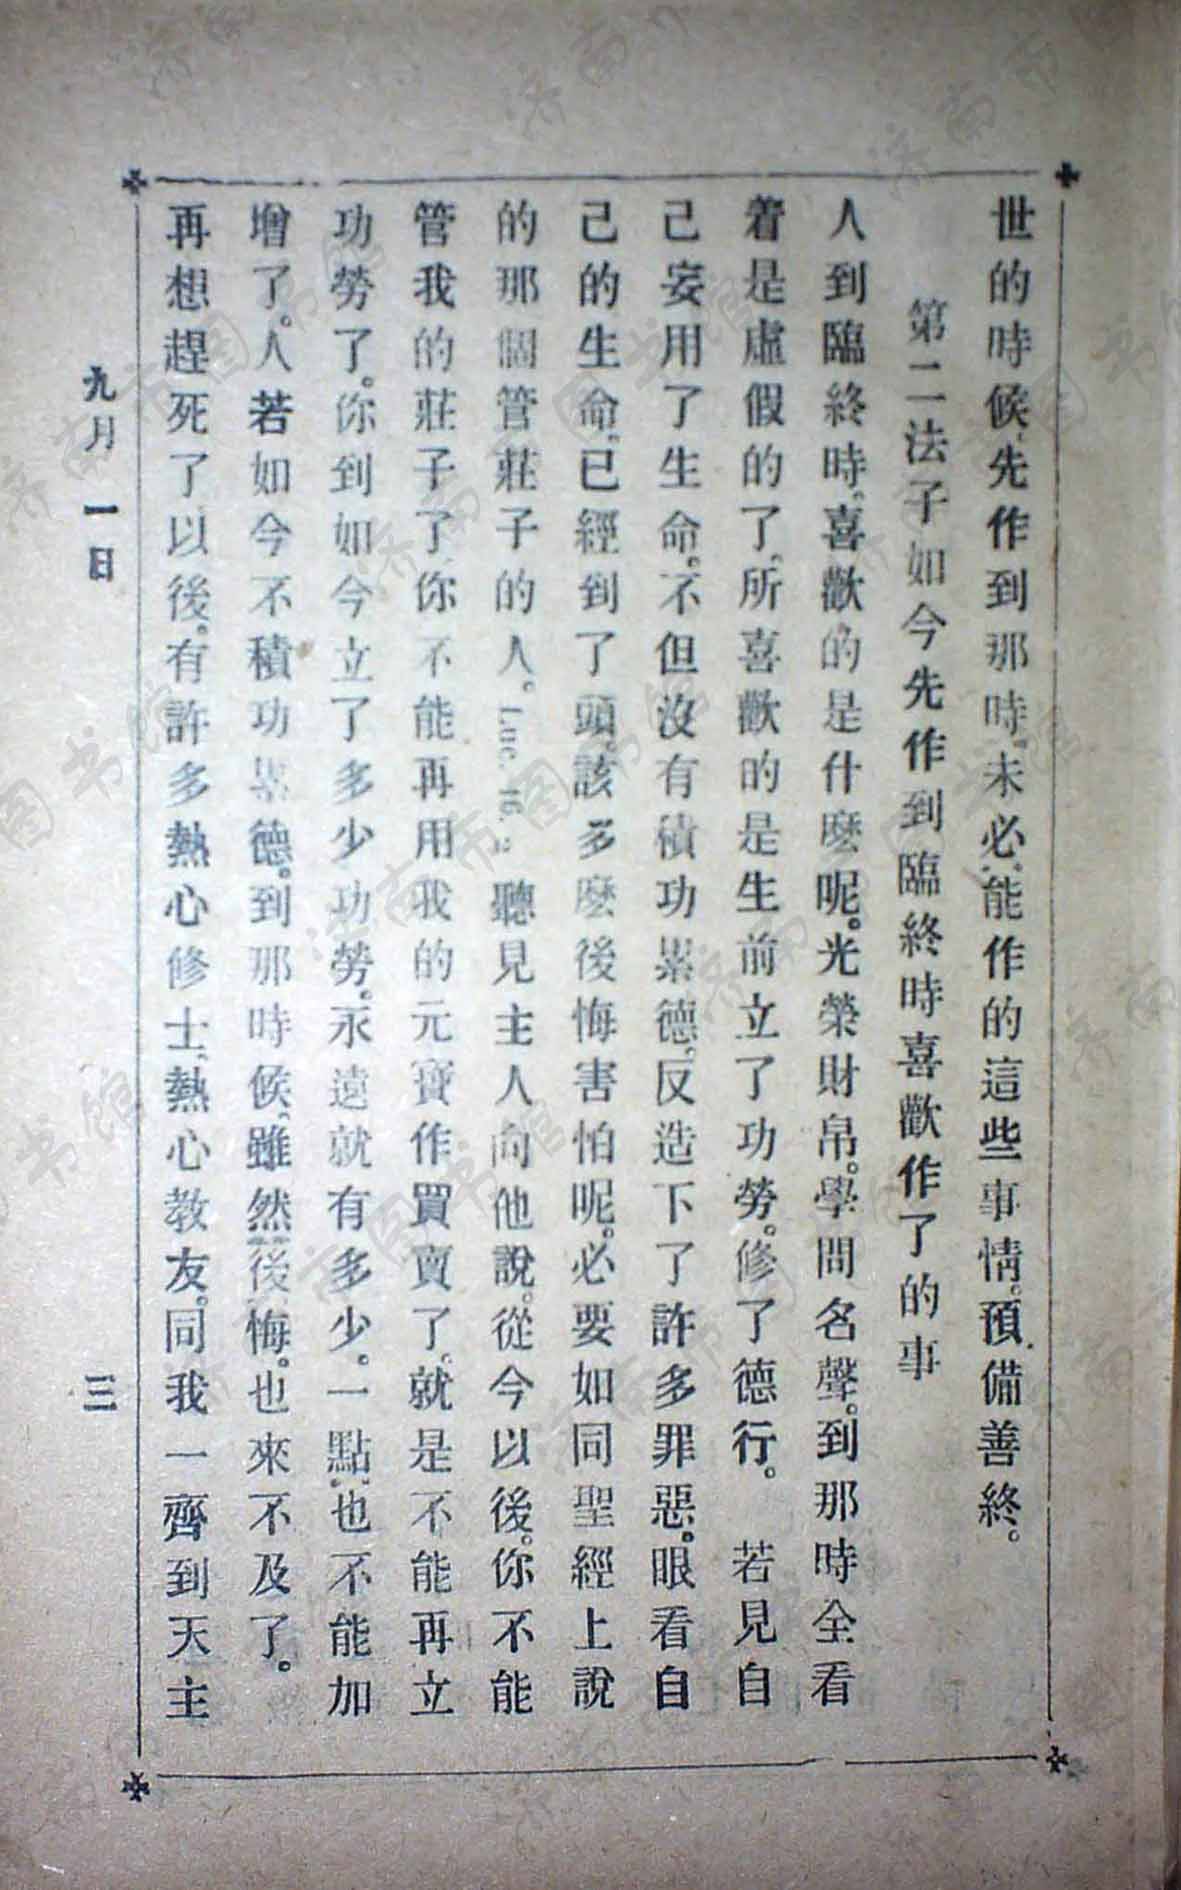 世的時候、先作到那時、未必能作的這些事情。預備善終。
第二法子如今先作到臨終時喜歡作了的事
人到臨終時、喜歡的是什麽呢。光榮財帛。學問名聲。到那時全看
着是虛假的了。所喜歡的是生前立了功勞。修了德行。 若見自
己妄用了生命。不但沒有積功累德、反造下了許多罪惡。眼看自
己的生命、已經到了頭。該多麽後悔害怕呢。必要如同聖經上說
的那個管莊子的人。Luc. 16. 2 聽見主人向他說。從今以後。你不能
管我的莊子了、你不能再用我的元寶作買賣了。就是不能再立
功勞了。你到如今立了多少功勞。永遠就有多少。一點也不能加
增了。人若如今不積功累德。到那時候、雖然後悔。也來不及了。
再想趕死了以後。有許多熱心修士、熱心教友。同我一齊到天主
九月 一日 三
济南市图书馆